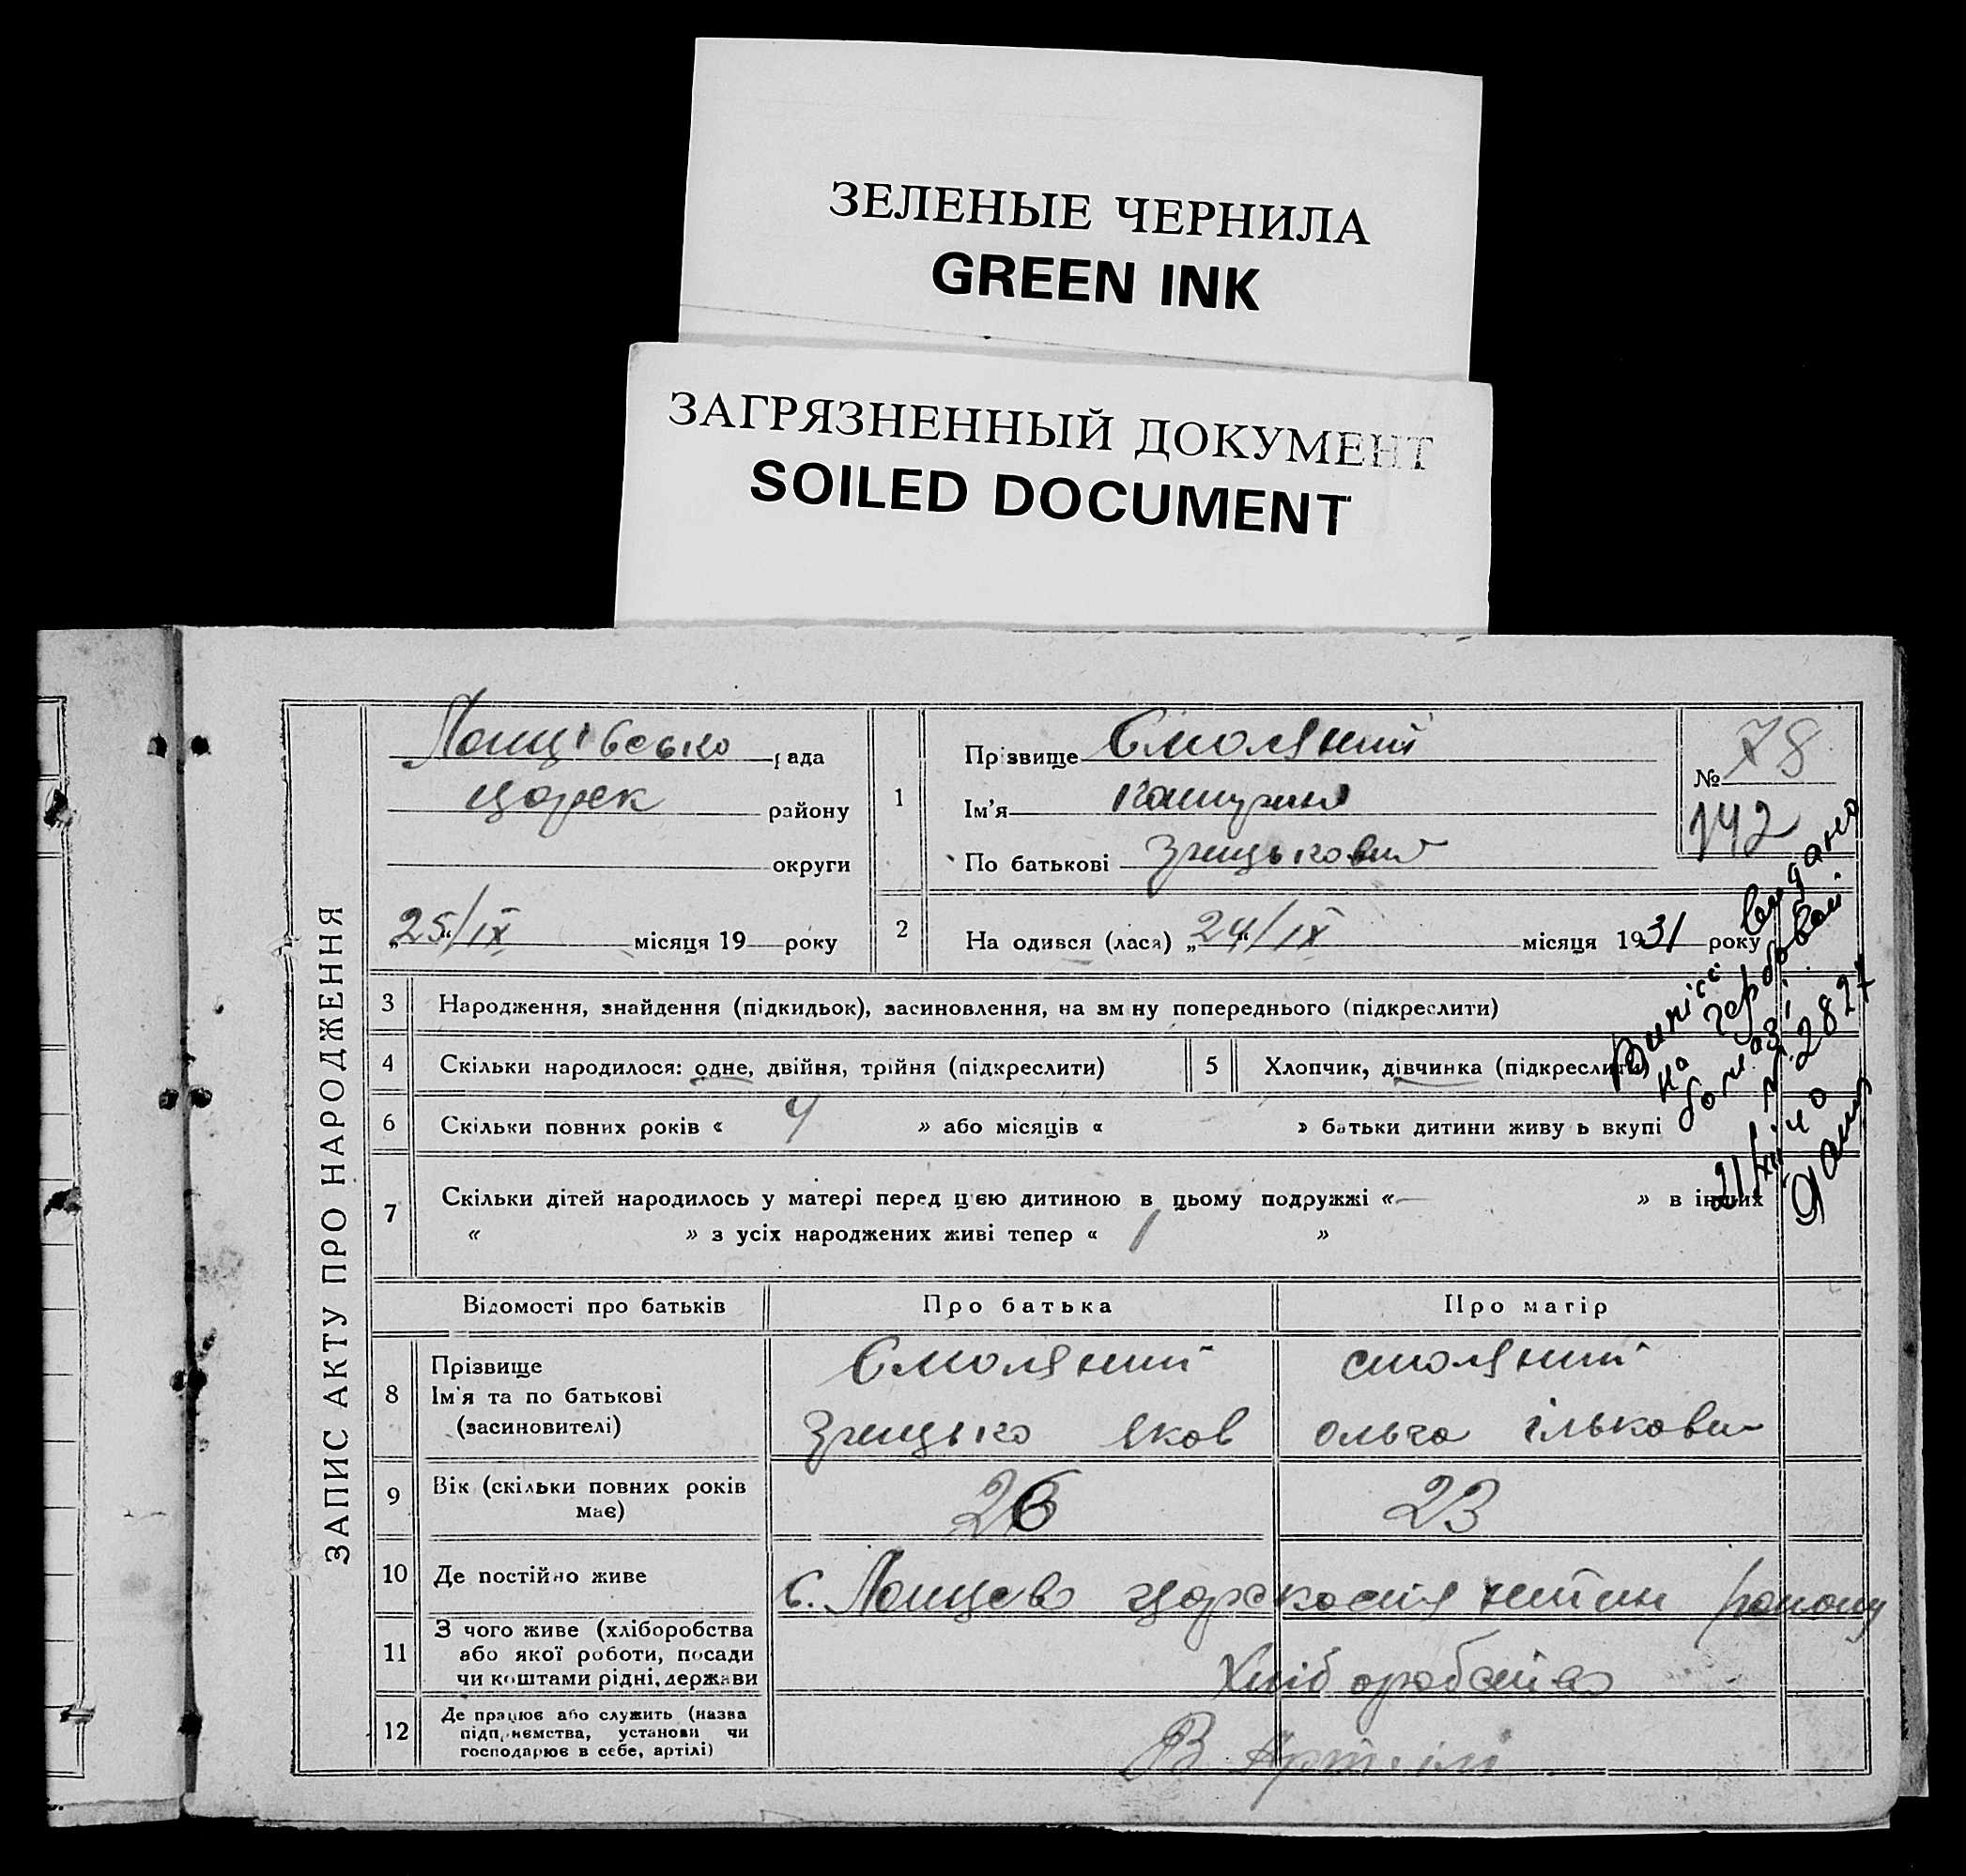 ЗЕЛЕНЫЕ ЧЕРНИЛА
GREEN INK
ЗАГРЯЗНЕННЫЙ ДОКУМЕНТ
SOILED DOCUMENT
ЗАПИС АКТУ ПРО НАРОДЖЕННЯ
рада
району
округи
25/IX місяця 19 року
1
Прізвище Смоляний
Ім'я
По батькові
№ 78
142
2
На одився (лася) „24/IX місяця 1931 року
3 Народження, знайдення (підкидьок), засиновлення, на зм ну попереднього (підкреслити)
4 Скільки народилося: одне, двійня, трійня (підкреслити)
5 Хлопчик, дівчинка (підкреслити)
6 Скільки повних років « 4 » або місяців « » батьки дитини живу ь вкупі
7 Скільки дітей народилось у матері перед цією дитиною в цьому подружжі « — » в інших
« » з усіх народжених живі тепер « 1 »
Виписі видано
на гербовій
бомазі
Відомості про батьків
Про батька
Про матір
8
Прізвище
Ім'я та по батькові
(засиновителі)
Смоляний
яков
смоляний
ольга ількови
9
Вік (скільки повних років
має)
26
23
10 Де постійно живе
с. району
11
З чого живе (хліборобства
або якої роботи, посади
чи коштами рідні, держави
Хліборобства
12
Де працює або служить (назва
підприємства, установи чи
господарює в себе, артілі)
В Артілі